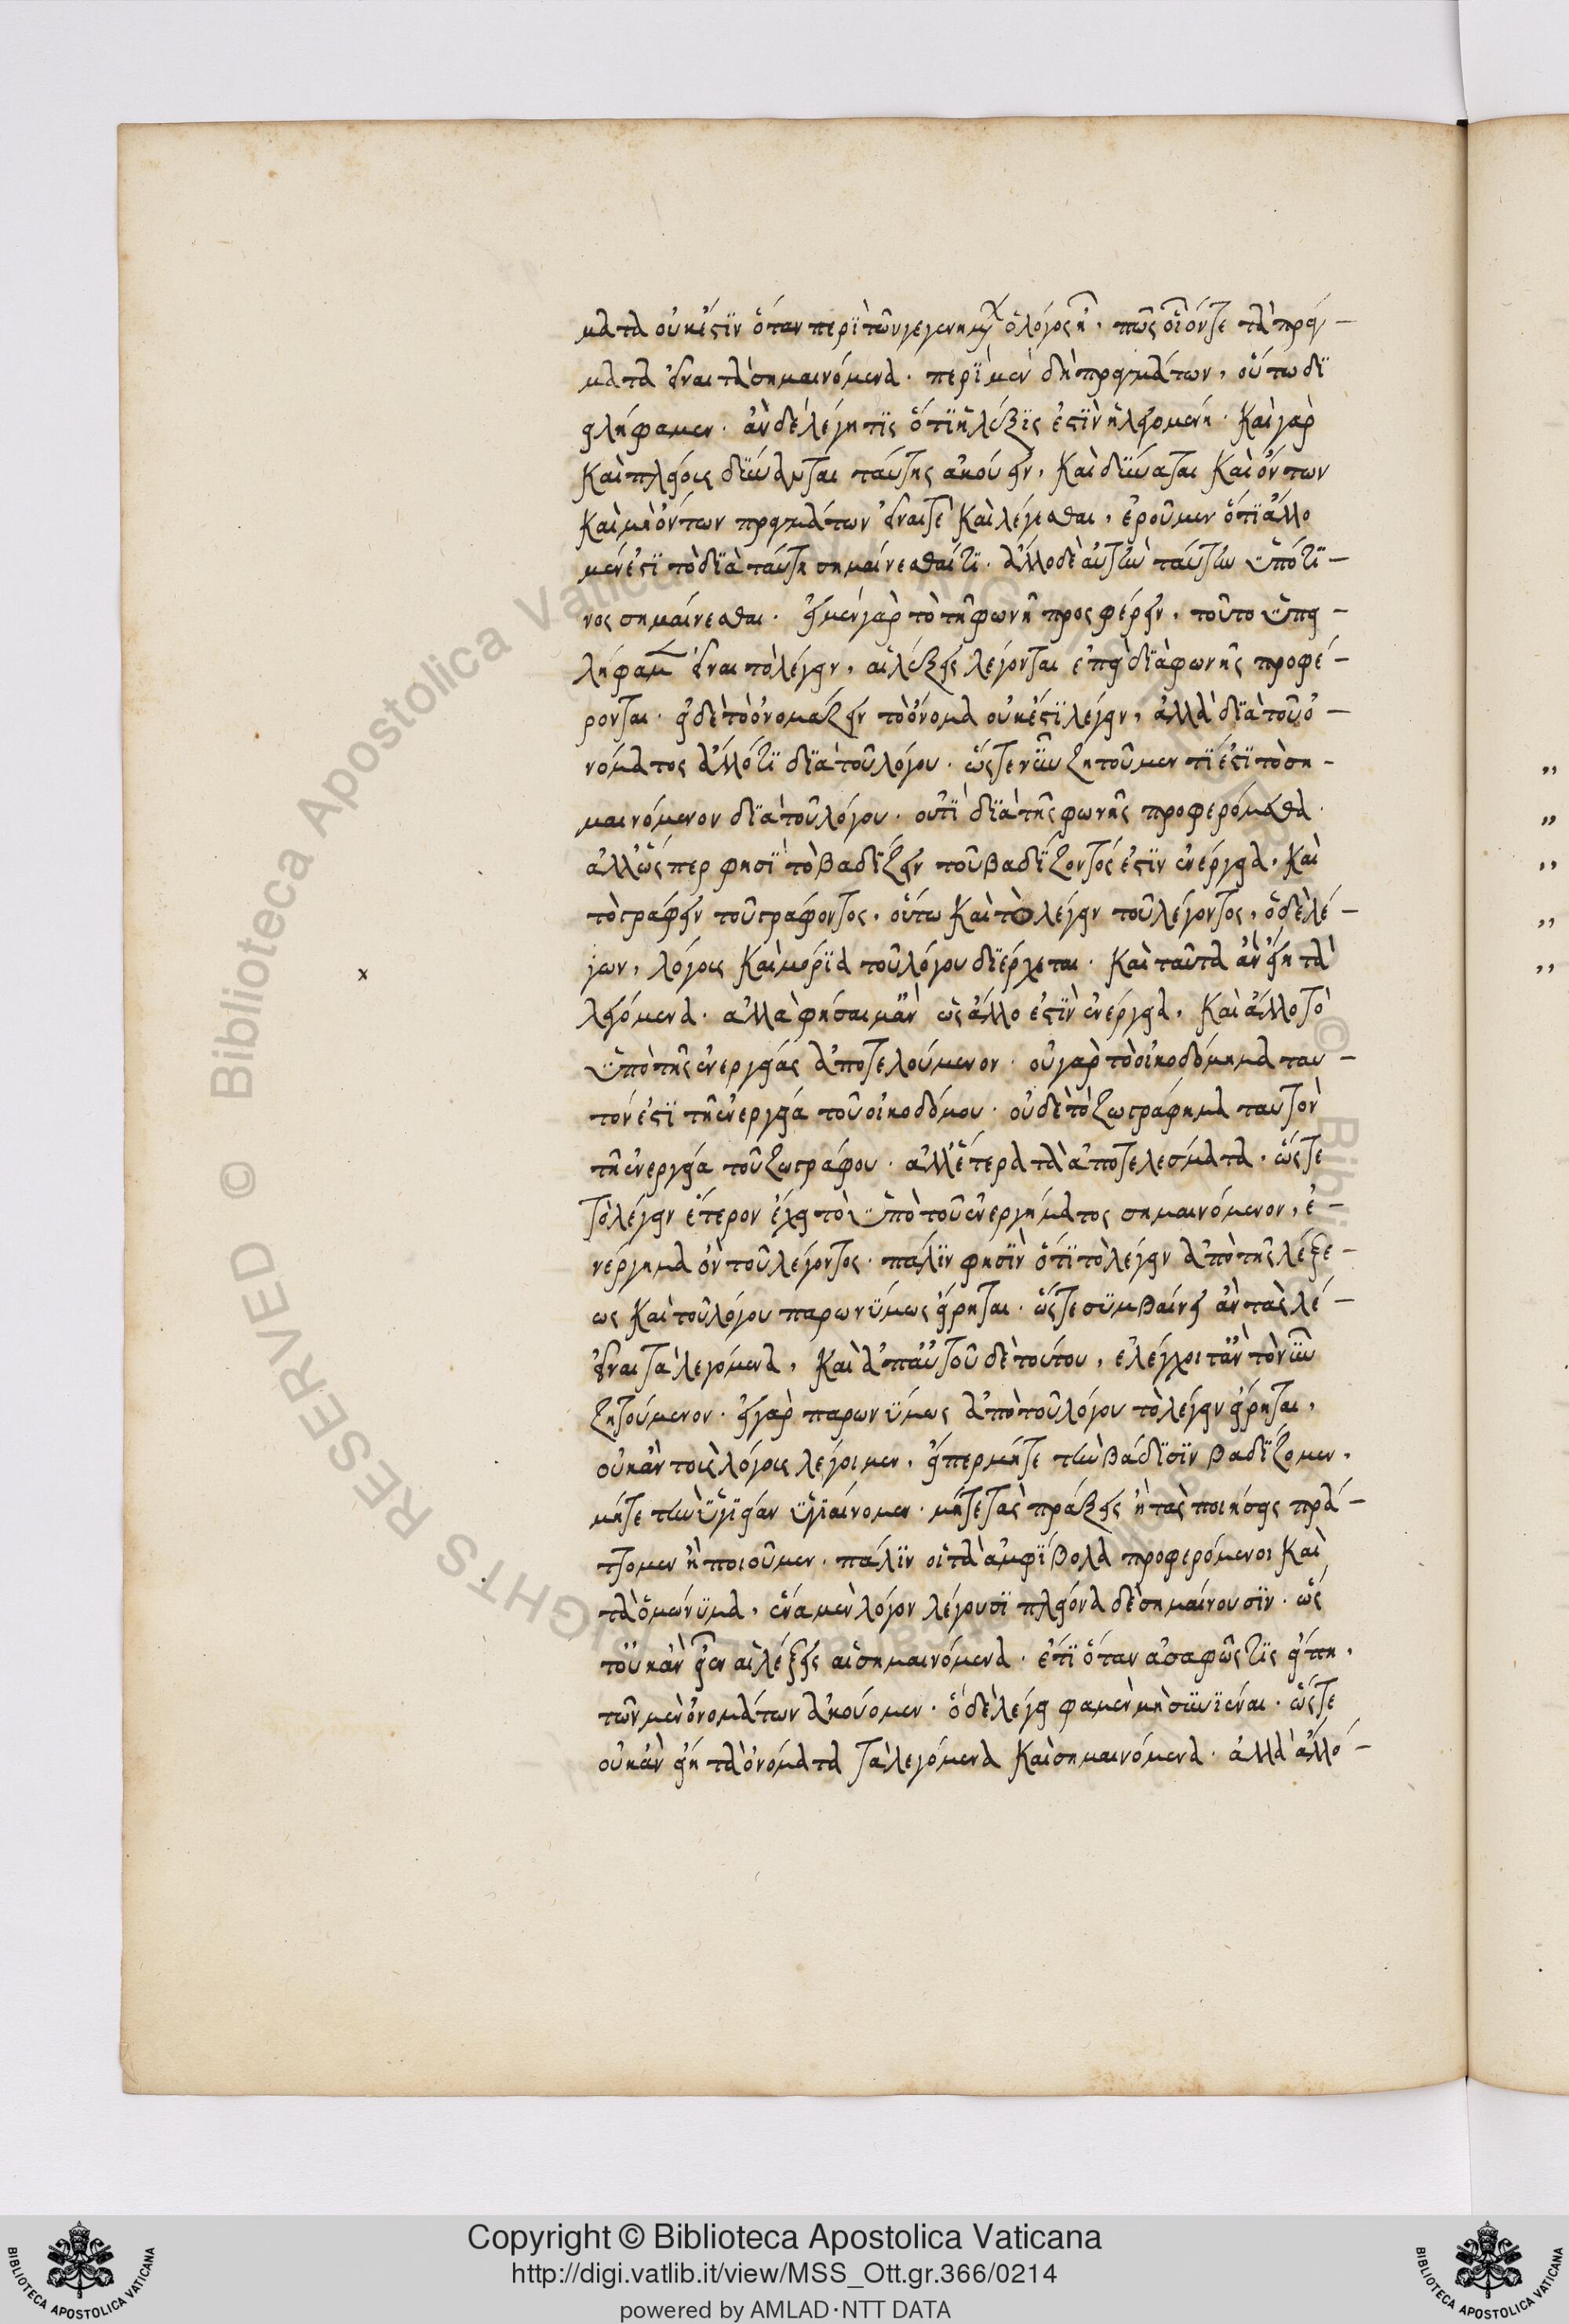 ματα οὐκέστιν ὅταν περὶ τῶν γεγενημένων ὁ λόγος ᾖ, πῶς οἷόντε τὰ πράγ-
ματα εἶναι τὰ σημαινόμενα. περὶ μὲν δὴ πραγμάτων, οὕτω δι
ειλήφαμεν. ἂν δὲ λέγητις ὅτι ἡ λέξις ἐστὶν ἡ λεγομένη. Καὶ γὰρ
Καὶ πλείοις δύναται ταύτης ἀκούειν, Καὶ δύναται Καὶ ὄντων
Καὶ μὴ ὄντων πραγμάτων εἶναί τε Καὶ λέγεσθαι, ἐροῦμεν ὅτι ἄλλο
μέν ἐστι τὸ διὰ ταύτη σημαίνεσθαί τι. ἄλλο δὲ αὐτὴν ταύτην ὑπό τι-
νος σημαίνεσθαι. εἰ μὲν γὰρ τὸ τῆ φωνῆ προσφέρειν, τοῦτο ὑπει-
λήφαμεν εἶναι τὸ λέγειν, αἱ λέξεις λέγονται ἐπεὶ διὰ φωνῆς προφέ-
ρονται. εἰ δὲ τὸ ὀνομάζειν τὸ ὄνομα οὐκέστι λέγειν, ἀλλὰ διὰ τοῦ ὀ-
νόματος ἄλλό τι διὰ τοῦ λόγου. ὥστε νῦν ζητοῦμεν τί ἐστι τὸ ση-
μαινόμενον διὰ τοῦ λόγου. οὔτι διὰ τῆς φωνῆς προφερόμεθα.
ἀλλ ὥσπερ φησὶ τὸ βαδίζειν τοῦ βαδίζοντός ἐστιν ἐνέργεια, Καὶ
τὸ γράφειν τοῦ γράφοντος, οὕτω Καὶ τὸ λέγειν τοῦ λέγοντος, ὁ δὲ λέ-
γων, λόγοις Καὶ μόρια τοῦ λόγου διέρχεται. Καὶ ταῦτα ἂν εἴη τὰ
λεγόμενα. ἀλλὰ φήσαιμ ἂν ὡς ἄλλο ἐστὶν ἐνέργεια, Καὶ ἄλλο τὸ
ὑπὸ τῆς ἐνεργείας ἀποτελούμενον. οὐ γὰρ τὸ οἰκοδόμημα ταυ-
τόν ἐστι τῆ ἐνεργεία τοῦ οἰκοδόμου. οὐδὲ τὸ ζωγράφημα ταυτὸν
τῆ ἐνεργεία τοῦ ζωγράφου. ἀλλ ἕτερα τὰ ἀποτελέσματα. ὥστε
τὸ λέγειν ἕτερον ἔχει τὸ ὑπὸ τοῦ ἐνεργήματος σημαινόμενον, ἐ-
νέργημα ὂν τοῦ λέγοντος. πάλιν φησὶν ὅτι τὸ λέγειν ἀπὸ τῆς λέξε-
ως Καὶ τοῦ λόγου παρωνύμως εἴρηται. ὥστε συμβαίνει ἂν τὰς λέ-
εἶναι τὰ λεγόμενα, Καὶ ἀπ αὐτοῦ δὲ τούτου, ἐλέγχοιτ ἂν τὸ νῦν
ζητούμενον. εἰ γὰρ παρωνύμως ἀπὸ τοῦ λόγου τὸ λέγειν εἴρηται,
οὐκ ἂν τοὺς λόγοις λέγοιμεν, εἴπερ μήτε τὴν βάδισιν βαδίζομεν,
μήτε τὴν ὑγιείαν ὑγιαίνομεν. μήτε τὰς πράξεις ἢ τὰς ποιήσεις πρά-
ττομεν ἢ ποιοῦμεν. πάλιν οἱ τὰ ἀμφίβολα προφερόμενοι Καὶ
τὰ ὁμώνυμα, ἕνα μὲν λόγον λέγουσι πλείονα δὲ σημαίνουσιν. ὥς
τ οὐκ ἂν εἶεν αἱ λέξεις αἱ σημαινόμενα. ἔτι ὅταν ἀσαφῶς τις εἴπη,
τῶν μὲν ὀνομάτων ἀκούομεν. ὃ δὲ λέγει φαμὲν μὴ συνιέναι. ὥστε
οὐκ ἂν εἴη τὰ ὀνόματα τὰ λεγόμενα Καὶ σημαινόμενα. ἀλλὰ ἄλλό-
x
,,
,,
,,
,,
,,
© Biblioteca Apostolica Vaticana
RIGHTS RESERVED
Copyright © Biblioteca Apostolica Vaticana
http://digi.vatlib.it/view/MSS_Ott.gr.366/0214
powered by AMLAD·NTT DATA
BIBLIOTECA APOSTOLICA VATICANA
BIBLIOTECA APOSTOLICA VATICANA